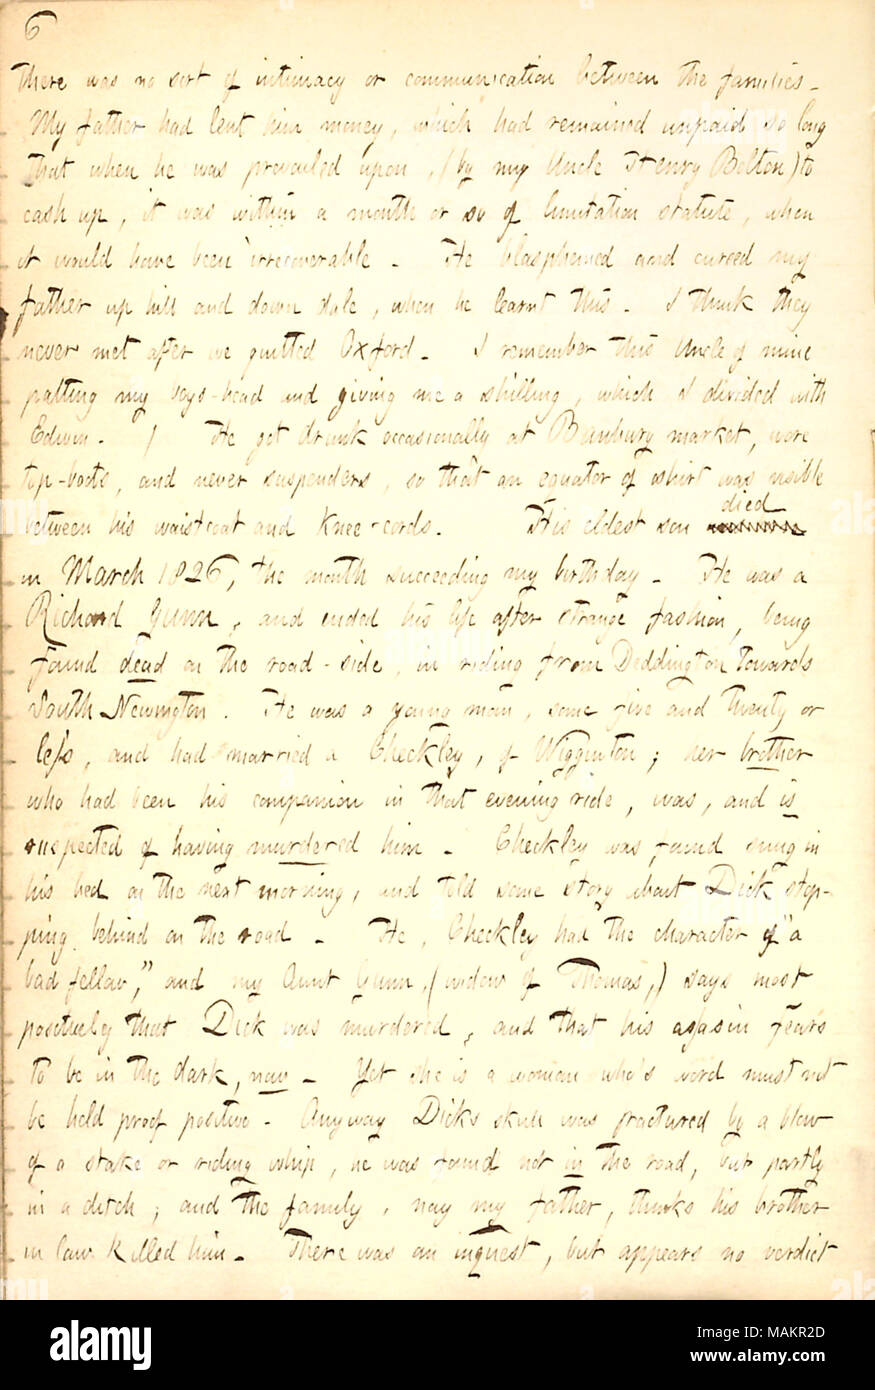 6
There was no sort of intimacy or communication between the families.
My father had lent him money, which had remained unpaid so long
that when he was prevailed upon, (by my Uncle Henry Bolton) to
cash up, it was within a month or so of limitation statute, when
it would have been irrecoverable. He blasphemed and cursed my
father up hill and down dale, when he learnt this. I think they
never met after we quitted Oxford. I remember this Uncle of mine
patting my boys-head and giving me a shilling, which I divided with
Edwin. / He got drunk occasionally at Banbury market, wore
top-boots, and never suspenders, so that an equator of shirt was visible
between his waistcoat and knee-cords. His eldest son died
in March 1826, the month succeeding my birthday. He was a
Richard Gunn, and ended his life after strange fashion, being
found dead on the road-side, in riding from Deddington towards
South Newington. He was a young man, some five and twenty or
less, and had married a Checkley, of Wigginton; her brother
who had been his companion in that evening ride, was, and is
suspected of having murdered him. Checkley was found snug in
his bed on the next morning, and told some story about Dick stop-
ping behind on the road. He, Checkley had the character of "a
bad fellow," and my Aunt Gunn, (widow of Thomas,) says most
positively that Dick was murdered, and that his assasin fears
to be in the dark, now. Yet she is a woman who's word must not
be held proof positive. Anyway Dicks skull was fractured by a blow
of a stake or riding whip, he was found not in the road, but partly
in a ditch; and the family, nay my father, thinks his brother
in law killed him. There was an inquest, but appears no verdict
alamy
Image ID: MAKR2D
www.alamy.com